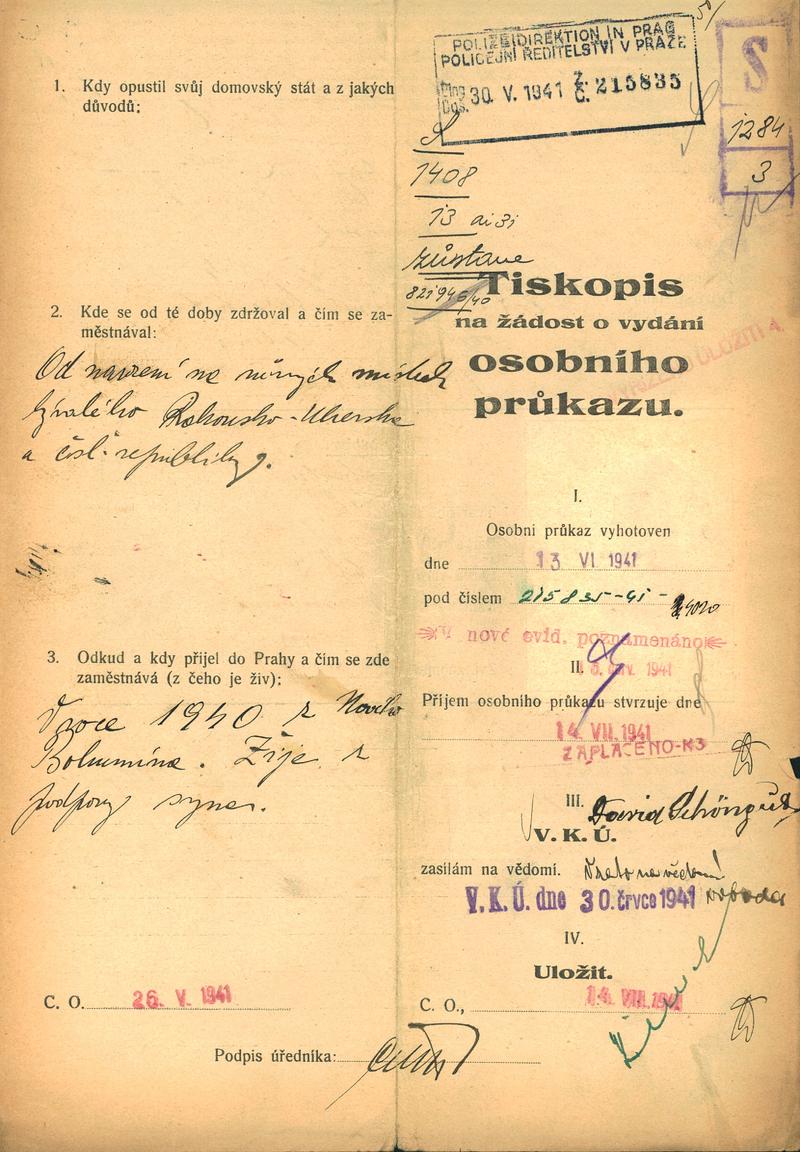 1. Kdy opustil svůj domovský stát a z jakých
důvodů:
2. Kde se od té doby zdržoval a čím se za-
městnával:
Od narození na různých místech
bývalého Rakousko-Uherska
a čsl. republiky.
3. Odkud a kdy přijel do Prahy a čím se zde
zaměstnává (z čeho je živ):
V roce 1940 z Nového
Bohumína. Žije z
podpory syna.
C. O. 26. V. 1941
Podpis úředníka:
POLIZEIDIREKTION IN PRAG
POLICEJNÍ ŘEDITELSTVÍ V PRAZE
Eing.
Doš. 30. V. 1941 Z.
Č. 215835
S
1284
3
1408
13
zůstane
Tiskopis
na žádost o vydání
osobního
průkazu.
ULOŽITI
I.
Osobní průkaz vyhotoven
dne 13 VI 1941
pod číslem 215835-41-
V nové evid. poznamenáno
II. 1941
Příjem osobního průkazu stvrzuje dne
14. VII. 1941
ZAPLACENO-K3
III. David Schöngut
V. K. Ú.
zasílám na vědomí. Vzato na vědomí
V. K. Ú. dne 30. črvce 1941
IV.
Uložit.
C. O., 14. VIII. 1941